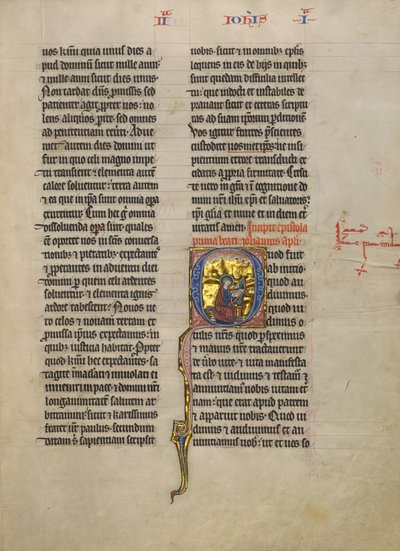 II Iohis I
uos karissimi quia unus dies a
pud dominum sicut mille anni
et mille anni sicut dies unus.
Non tardat dominus promissis sed
patienter agit propter uos: no
lens aliquos perire sed omnes
ad penitentiam reuerti. Adue
niet autem dies domini ut
fur in quo celi magno impe
tu transient et elementa autem
calore soluentur: terra autem
et ea que in ipsa sunt omnia
exurentur. Cum hec omnia
dissoluenda sint quales
oportet uos in sanctis conuersa
tionibus et pietatibus expectantes
et properantes in aduentum diei
domini per quem celi ardentes
soluentur et elementa ignis
ardore tabescent. Nouos ue
ro celos et nouam terram et
promissa ipsius expectamus: in
quibus iusticia habitat. Propter
quod karissimi hec expectantes sa
tagite immaculati et inuiolati ei
inueniri in pace et domini nostri
longanimitatem salutem ar
bitramini: sicut et karissimus
frater noster paulus secundum
datam sibi sapientiam scripsit
uobis. sicut et in omnibus epistolis
loquens in eis de hijs in quibus
sunt quedam difficilia intellec
tu: que indocti et instabiles de
prauant sicut et ceteras scriptu
ras ad suam ipsorum perditionem.
Vos igitur fratres prescientes
custodite uosmetipsos ne insi
pientium errore transducti ex
cidatis a propria firmitate. Cresci
te uero in gratia et cognitione do
mini nostri ihesu christi et saluatoris.
ipsi gloria et nunc et in diem et
ternitatis amen. Incipit epistola
prima beati iohannis apostoli
Quod fuit
ab initio
quod au
diuimus
quod ui
dimus o
culis nostris quod perspeximus
et manus nostre tractauerunt
de uerbo uite et uita manifesta
ta est et uidimus et testamur et
annuntiamus uobis uitam eter
nam: que erat apud patrem
et apparuit nobis. Quod ui
dimus et audiuimus et an
nuntiamus uobis: ut et uos so